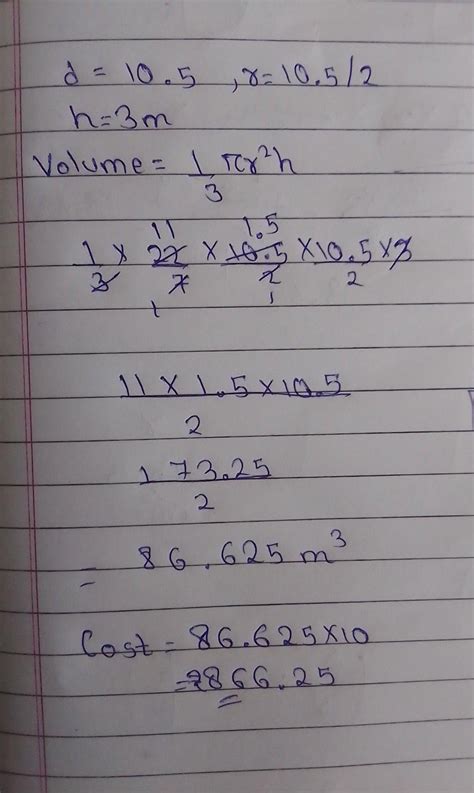 d = 10.5 , r = 10.5/2
h = 3m
Volume = 1/3 πr²h
11 1.5
1/3 × 22/7 × 10.5/2 × 10.5/2 × 3
1 1
11 × 1.5 × 10.5 / 2
173.25 / 2
= 86.625 m³
Cost = 86.625×10
= 866.25